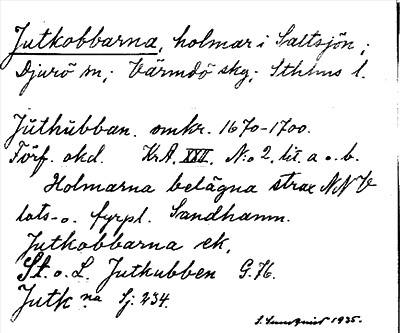 Jutkobbarna, holmar i Saltsjön;
Djurö sn; Värmdö skg; Sthlms l.
Juthubban. omkr. 1670-1700.
Förf. okd. KrA. XXV. N:o 2. lit. a o. b.
Holmarna belägna strax NNV
lots- o. fyrpl. Sandhamn.
Jutkobbarna ek.
St. o. L. Jutkubben G. 76.
Jutk na Sj: 234.
S. Lundqvist 1935.